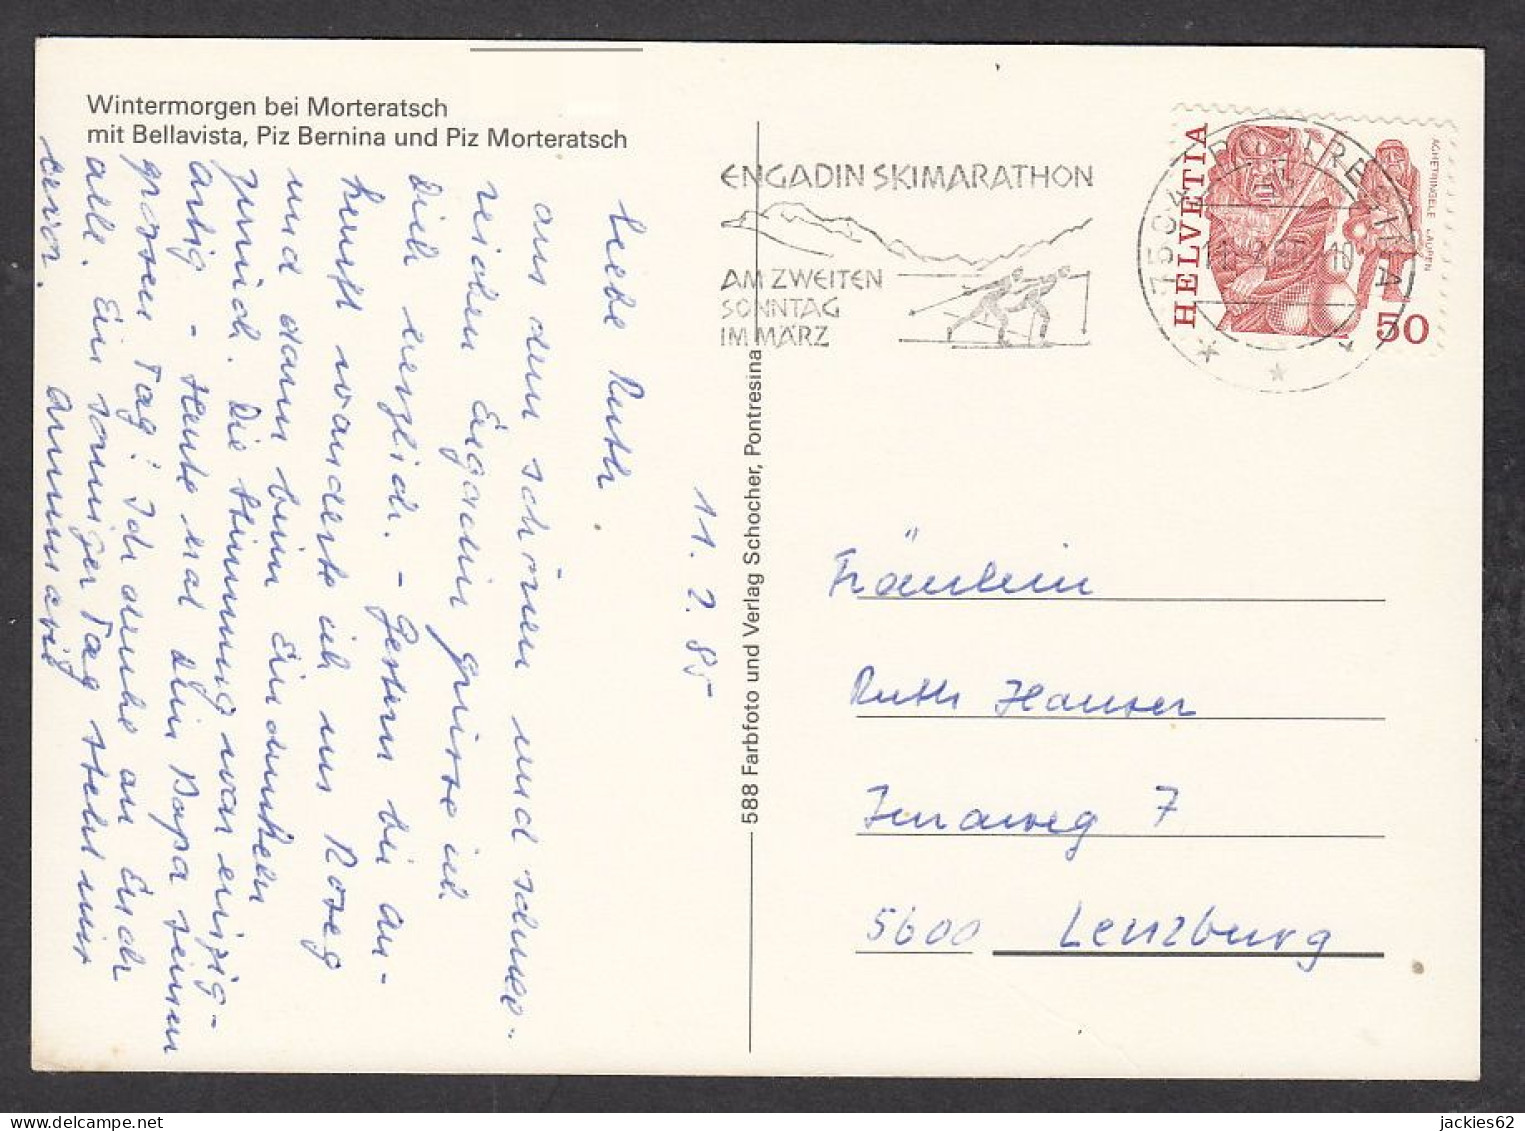 Wintermorgen bei Morteratsch
mit Bellavista, Piz Bernina und Piz Morteratsch
11. 2. 85
Liebe Ruth.
aus dem schönen und schnee-
reichen Engadin grüsse ich
Dich herzlich. - Gestern bei An-
kunft wanderte ich ins Roseg
und dann beim Eindunkeln
zurück. Die Stimmung war einzig-
artig - Heute hat Dein Papa seinen
grossen Tag! Ich denke an Euch
alle. Ein sonniger Tag steht mir
bevor. Annmarie
588 Farbfoto und Verlag Schocher, Pontresina
ENGADIN SKIMARATHON
AM ZWEITEN
SONNTAG
IM MÄRZ
7504 PONTRESINA
HELVETIA
ACHETRINGELE LAUPEN
50
Fräulein
Ruth Hauser
7
5600 Lenzburg
jackies62